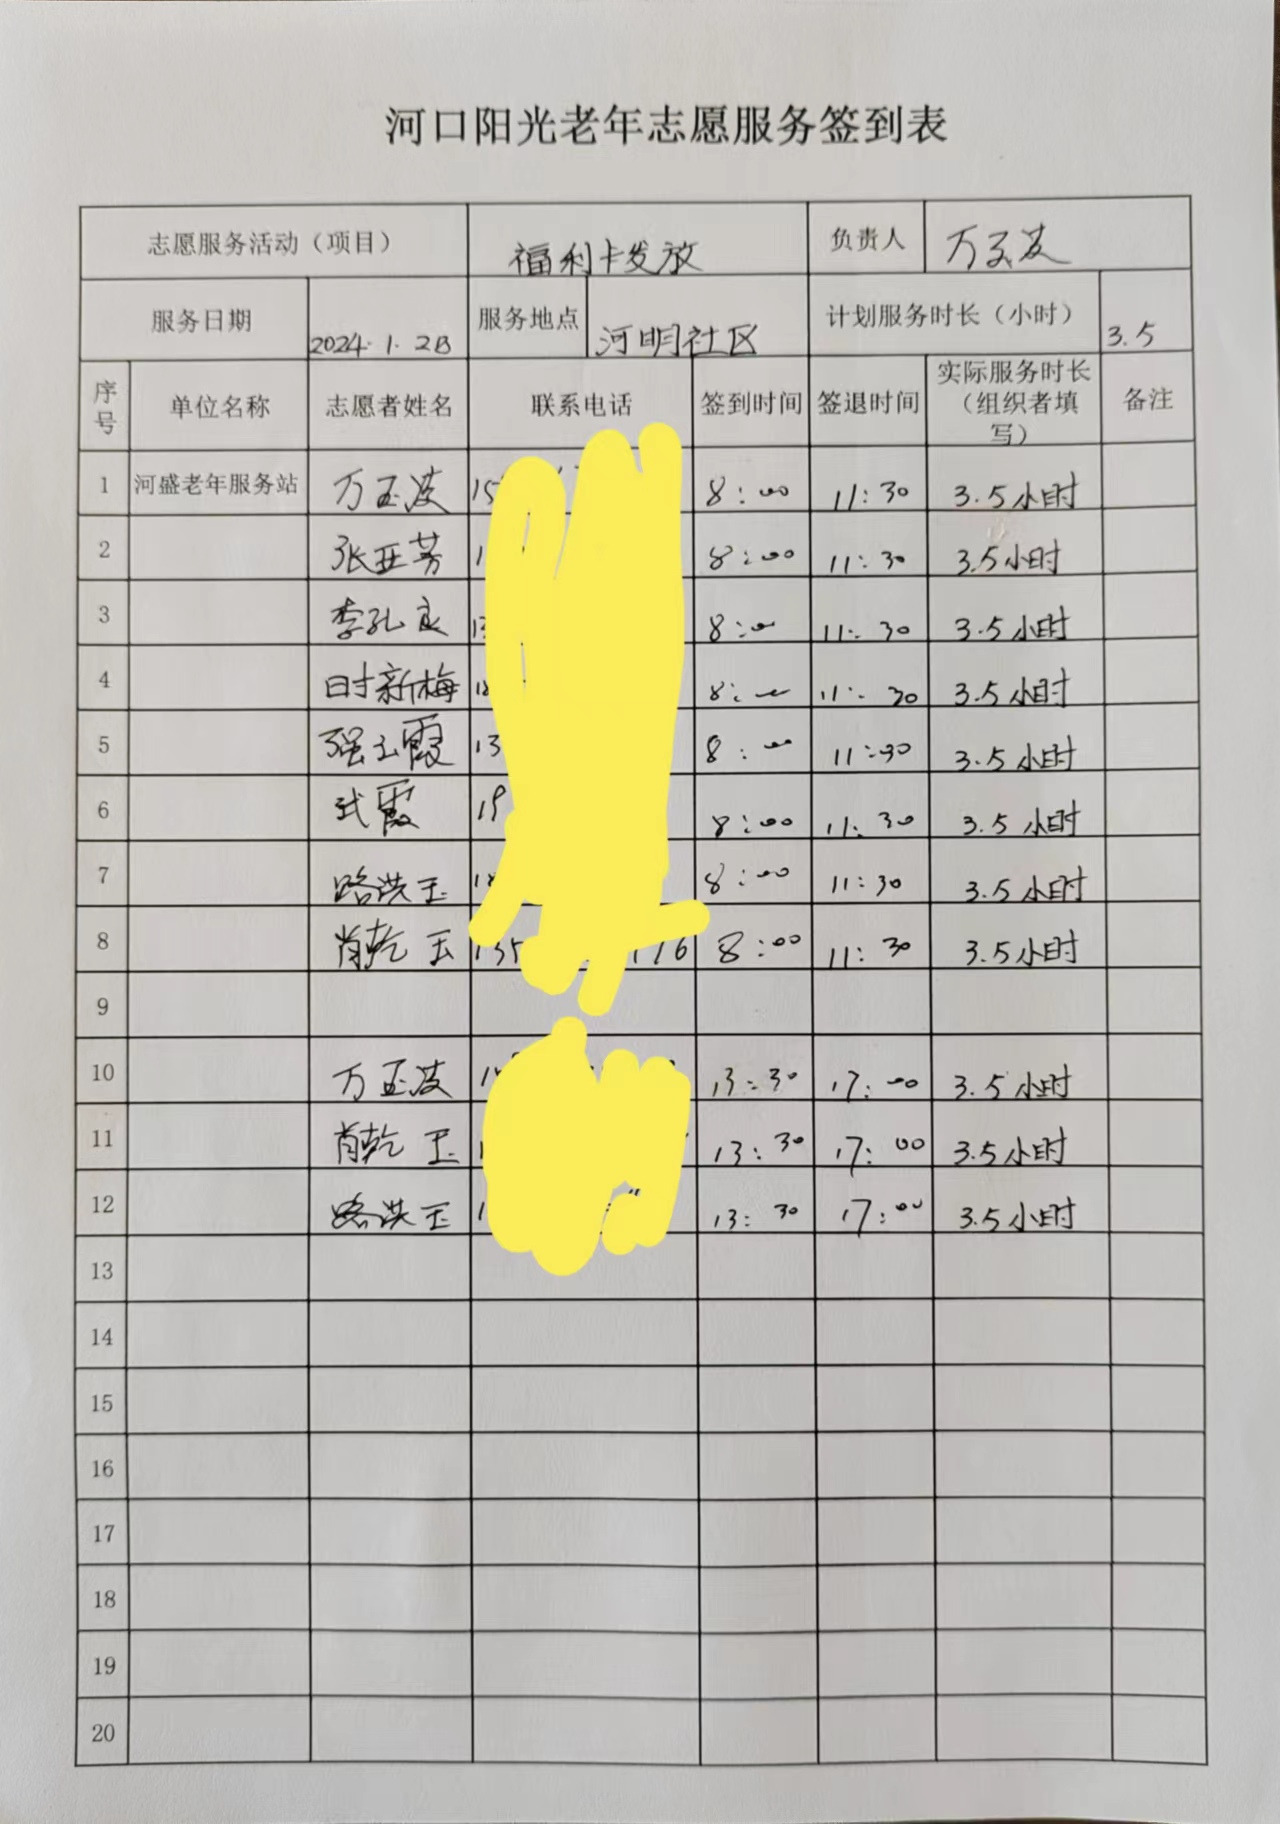 河口阳光老年志愿服务签到表
志愿服务活动（项目） 福利卡发放 负责人 万玉波
服务日期 2024.1.2日 服务地点 河明社区 计划服务时长（小时） 3.5
序号 单位名称 志愿者姓名 联系电话 签到时间 签退时间 实际服务时长（组织者填写） 备注
1 河盛老年服务站 万玉波 15 8:00 11:30 3.5小时
2 张亚芳 1 8:00 11:30 3.5小时
3 李孔良 13 8:00 11:30 3.5小时
4 时新梅 18 8:00 11:30 3.5小时
5 强玉霞 13 8:00 11:30 3.5小时
6 武霞 19 8:00 11:30 3.5小时
7 路洪玉 18 8:00 11:30 3.5小时
8 肖乾玉 135 176 8:00 11:30 3.5小时
9
10 万玉波 13:30 17:00 3.5小时
11 肖乾玉 1 13:30 17:00 3.5小时
12 路洪玉 1 13:30 17:00 3.5小时
13
14
15
16
17
18
19
20